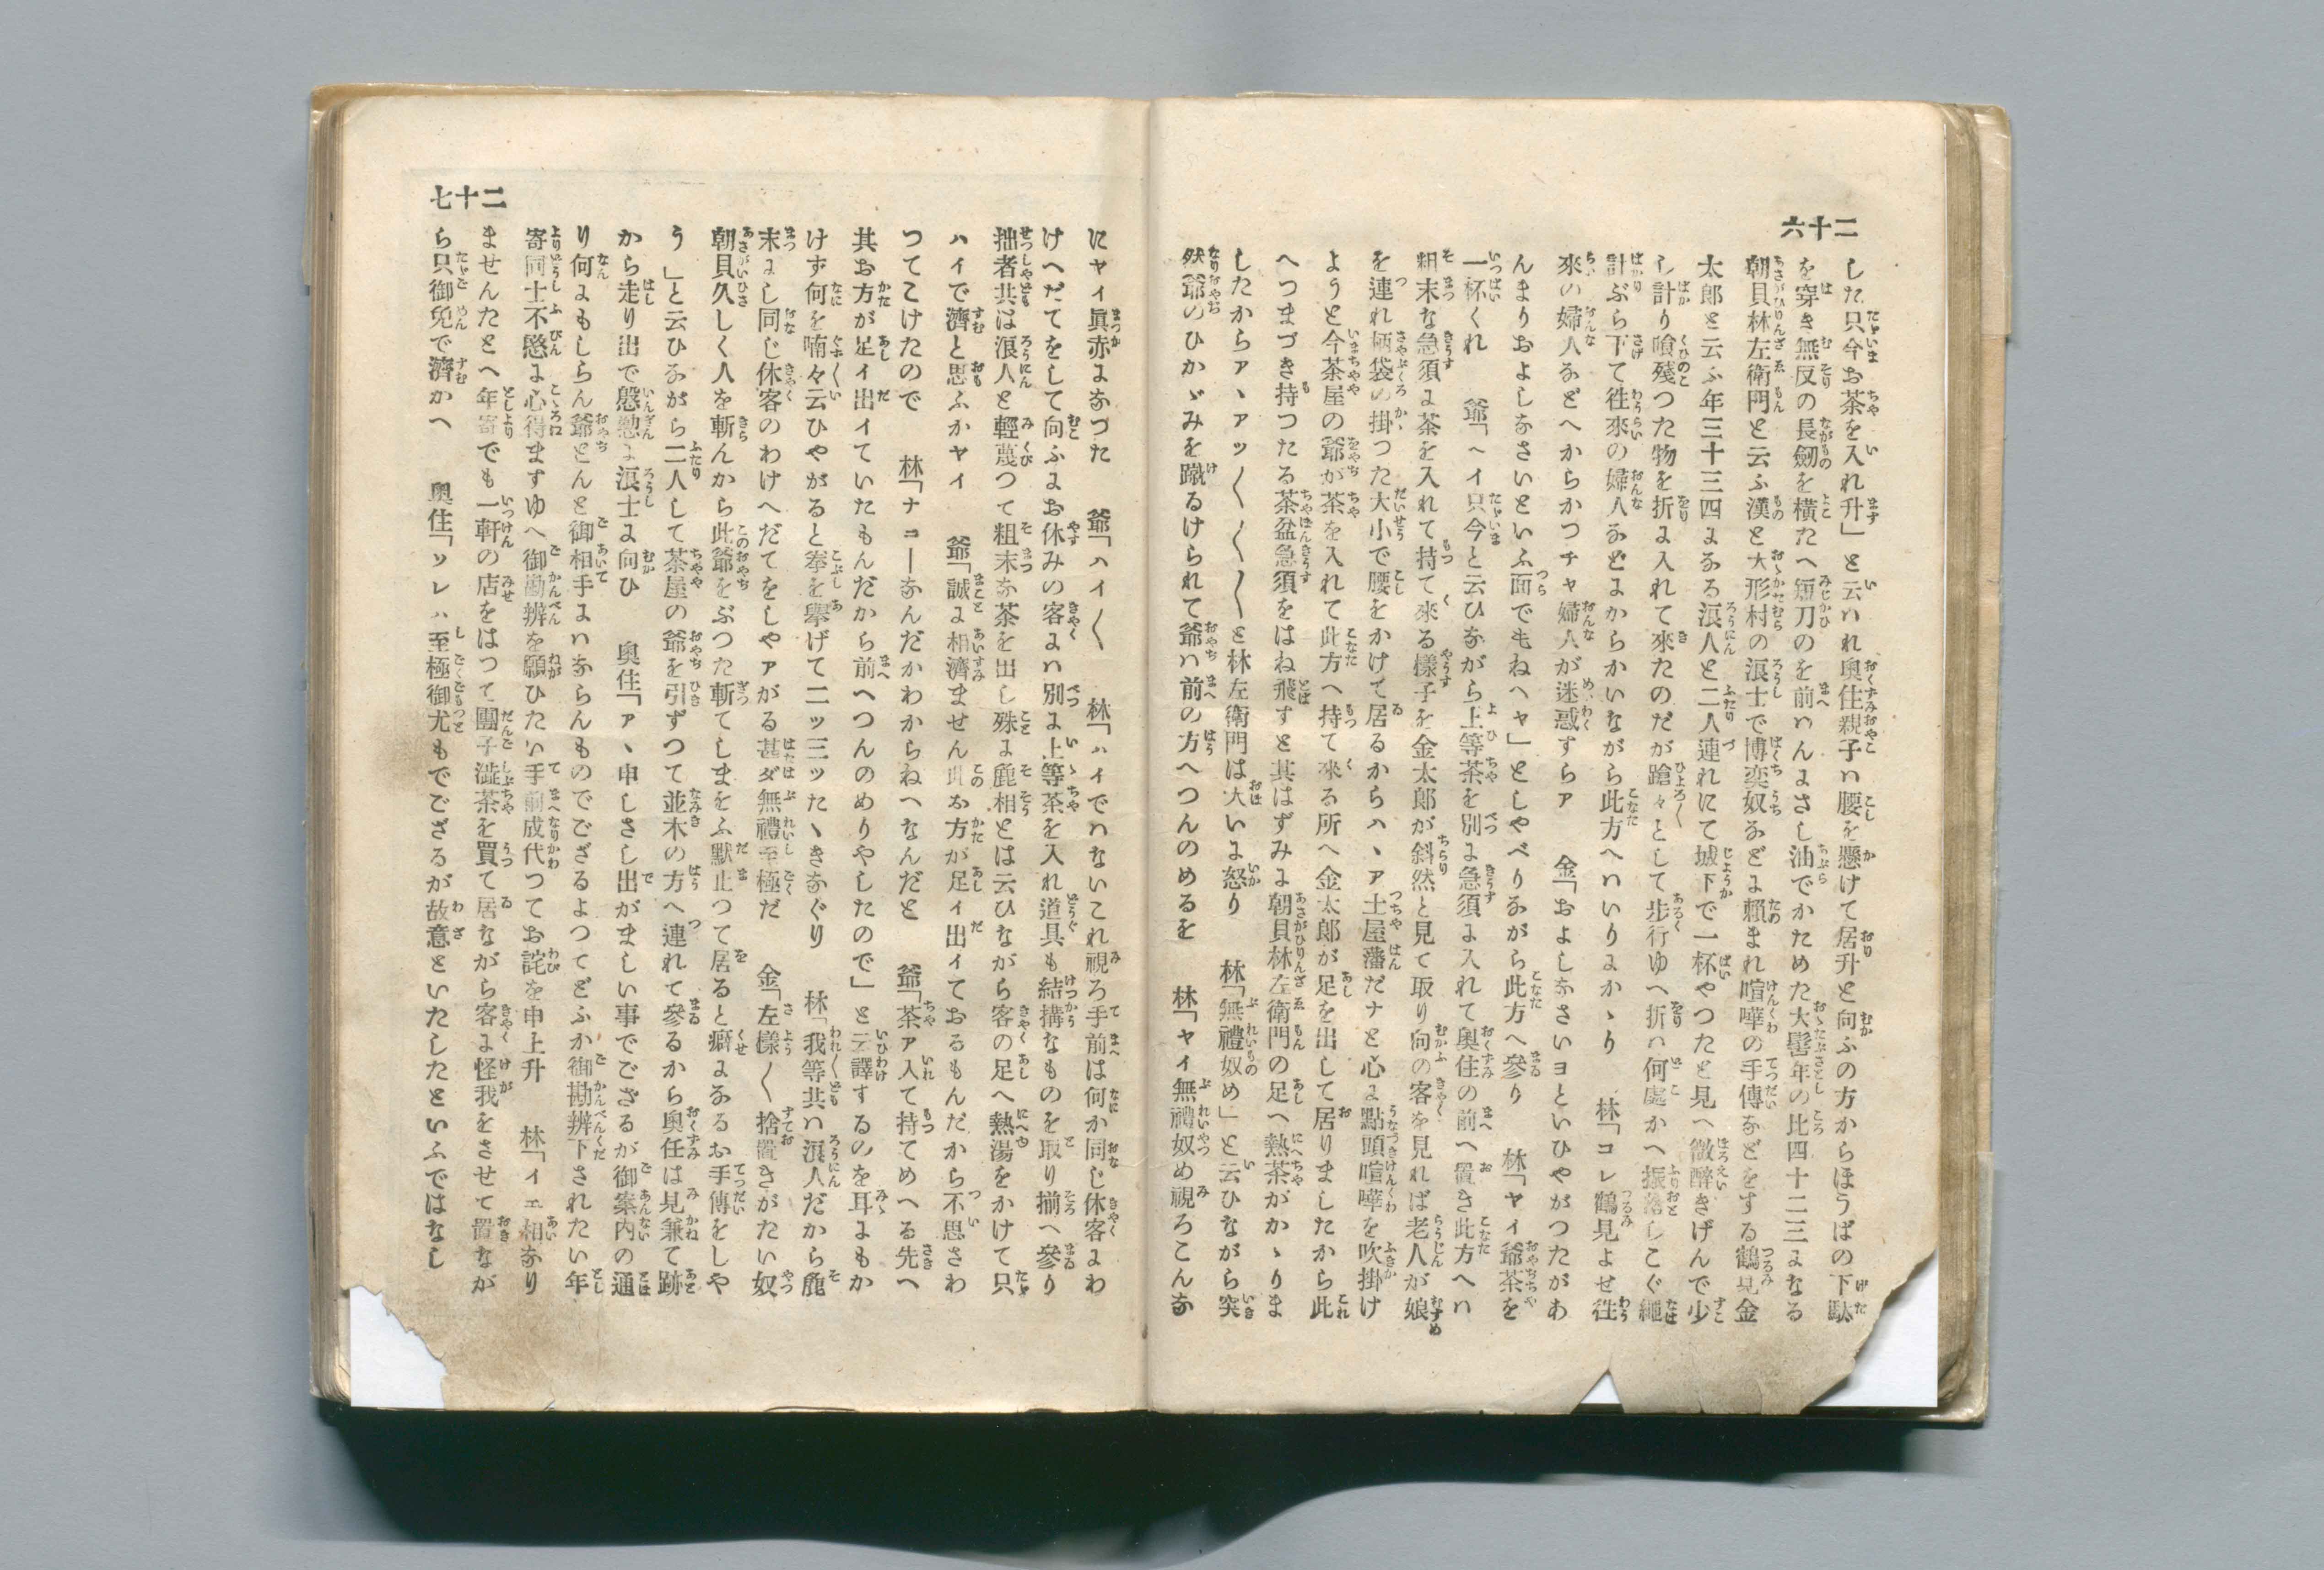 二十六
した只今お茶を入れ升」と云ハれ奥住親子ハ腰を懸けて居升と向ふの方からほうばの下駄
を穿き無反の長劒を横たへ短刀のを前ハんまさし油でかためた大髻年の比四十二三まなる
朝貝林左衛門と云ふ漢と大形村の浪士で博奕奴などま賴まれ喧嘩の手傳などをする鶴見金
太郎と云ふ年三十三四まなる浪人と二人連れにて城下で一杯やつたと見へ微醉きげんで少
し計り喰殘つた物を折ま入れて來たのだが蹌々として歩行ゆへ折ハ何處かへ振落しこぐ繩
計ぶら下て徃來の婦人などまからかいながら此方へハいりまかゝり　林「コレ鶴見よせ徃
來の婦人などへからかつチャ婦人が迷惑すらア　金「およしなさいヨといひやがつたがあ
んまりおよしなさいといふ面でもねへヤ」としやべりながら此方へ參り　林「ヤイ爺茶を
一杯くれ　爺「ヘイ只今と云ひながら上等茶を別ま急須ま入れて奥住の前へ置き此方へハ
粗末な急須ま茶を入れて持て來る樣子を金太郎が斜然と見て取り向の客を見れば老人が娘
を連れ柄袋の掛つた大小で腰をかけて居るからハヽア土屋藩だナと心ま點頭喧嘩を吹掛け
ようと今茶屋の爺が茶を入れて此方へ持て來る所へ金太郎が足を出して居りましたから此
へつまづき持つたる茶盆急須をはね飛すと其はずみま朝貝林左衛門の足へ熱茶がかゝりま
したからアヽアッ〱〱〱と林左衛門は大いま怒り　林「無禮奴め」と云ひながら突
然爺のひかゞみを蹴るけられて爺ハ前の方へつんのめるを　林「ヤイ無禮奴め視ろこんな
二十七
にヤイ眞赤まなつた　爺「ハイ〱　林「ハイでハないこれ視ろ手前は何か同じ休客まわ
けへだてをして向ふまお休みの客まハ別ま上等茶を入れ道具も結構なものを取り揃へ參り
拙者共は浪人と輕蔑つて粗末な茶を出し殊ま麁相とは云ひながら客の足へ熱湯をかけて只
ハイで濟と思ふかヤイ　爺「誠ま相濟ません此お方が足イ出イておるもんだから不思さわ
つてこけたので　林「ナニーなんだかわからねへなんだと　爺「茶ア入て持てめへる先へ
其お方が足イ出イていたもんだから前へつんのめりやしたので」と云譯するのを耳まもか
けず何を喃々云ひやがると拳を擧げて二ッ三ッたゝきなぐり　林「我等共ハ浪人だから麁
末まし同じ休客のわけへだてをしやアがる甚ダ無禮至極だ　金「左樣〱捨置きがたい奴
朝貝久しく人を斬んから此爺をぶつた斬てしまをふ默止つて居ると癖まなるお手傳をしや
う」と云ひながら二人して茶屋の爺を引ずつて並木の方へ連れて參るから奥住は見兼て跡
から走り出で慇懃ま浪士ま向ひ　奥住「アヽ申しさし出がましい事でござるが御案内の通
り何まもしらん爺どんと御相手まハならんものでござるよつてどふか御勘辨下されたい年
寄同士不愍ま心得ますゆへ御勘辨を願ひたい手前成代つてお詫を申上升　林「イエ相なり
ませんたとへ年寄でも一軒の店をはつて團子澁茶を買て居ながら客ま怪我をさせて置なが
ら只御免で濟かへ　奥住「ソレハ至極御尤もでござるが故意といたしたといふではなし